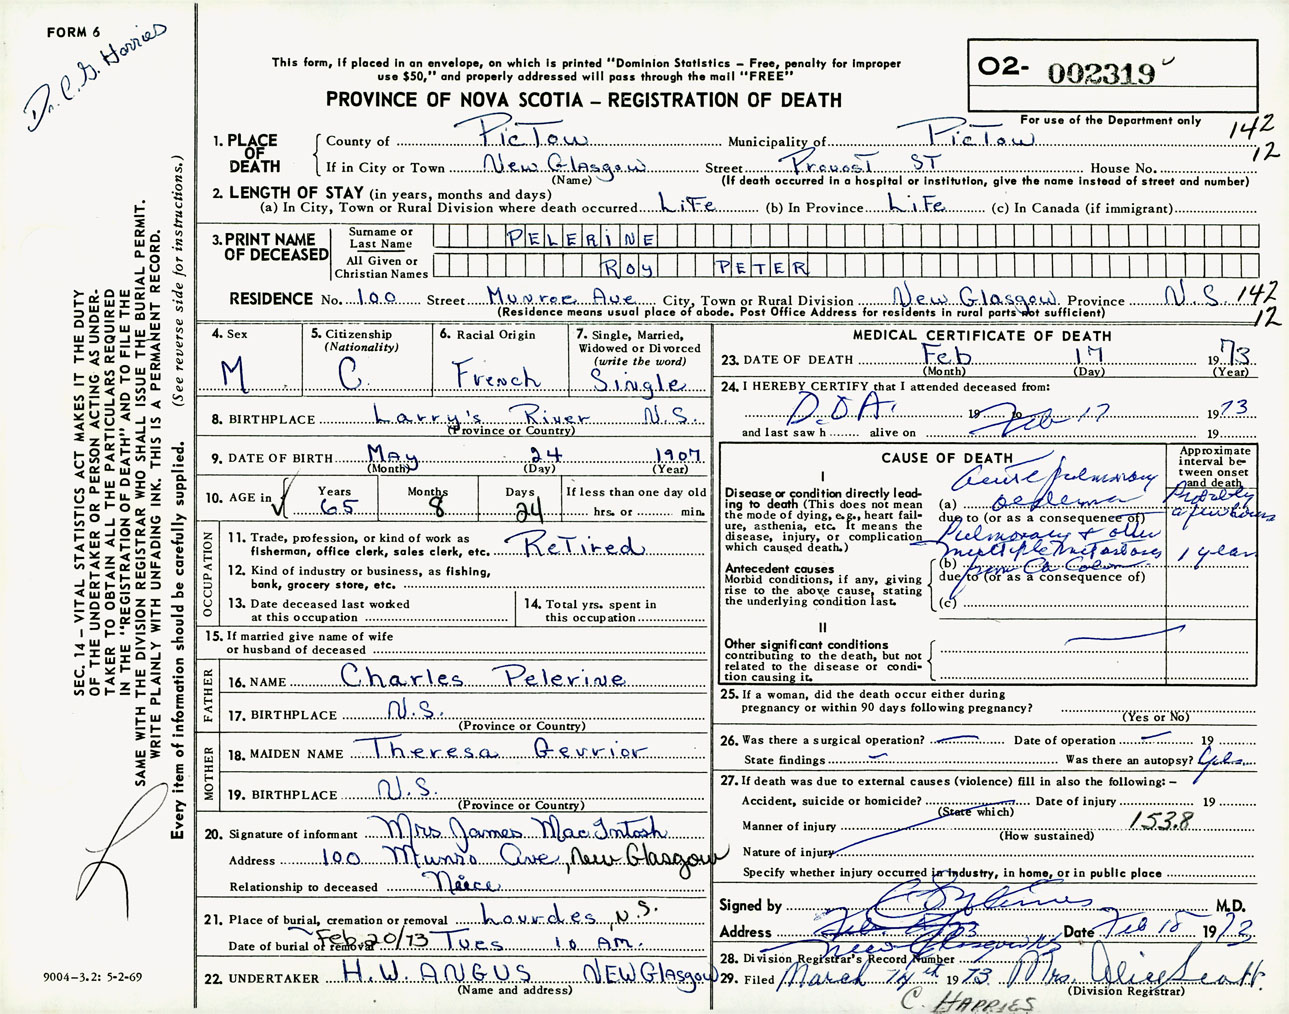 FORM 6
Dr. C. G. Harries
This form, if placed in an envelope, on which is printed "Dominion Statistics – Free, penalty for improper
use $50," and properly addressed will pass through the mail "FREE"
PROVINCE OF NOVA SCOTIA – REGISTRATION OF DEATH
O2- 002319
For use of the Department only
142
12
1. PLACE OF DEATH
County of PicTou Municipality of PicTou
If in City or Town New Glasgow Street Provost ST House No.
(Name) (If death occurred in a hospital or institution, give the name instead of street and number)
2. LENGTH OF STAY (in years, months and days)
(a) In City, Town or Rural Division where death occurred LiFe (b) In Province LiFe (c) In Canada (if immigrant)
3. PRINT NAME OF DECEASED
Surname or Last Name PELERINE
All Given or Christian Names ROY PETER
RESIDENCE No. 100 Street Munroe Ave City, Town or Rural Division New Glasgow Province N.S. 142
(Residence means usual place of abode. Post Office Address for residents in rural parts not sufficient) 12
4. Sex
M
5. Citizenship
(Nationality)
C.
6. Racial Origin
French
7. Single, Married,
Widowed or Divorced
(write the word)
Single
8. BIRTHPLACE Larry's River N.S.
(Province or Country)
9. DATE OF BIRTH May 24 1907
(Month) (Day) (Year)
10. AGE in Years Months Days If less than one day old
65 8 24 hrs. or min.
OCCUPATION
11. Trade, profession, or kind of work as
fisherman, office clerk, sales clerk, etc. ReTired
12. Kind of industry or business, as fishing,
bank, grocery store, etc.
13. Date deceased last worked
at this occupation
14. Total yrs. spent in
this occupation
15. If married give name of wife
or husband of deceased
FATHER
16. NAME Charles Pelerine
17. BIRTHPLACE N.S.
(Province or Country)
MOTHER
18. MAIDEN NAME Theresa Gerrior
19. BIRTHPLACE N.S.
(Province or Country)
20. Signature of informant Mrs James MacIntosh
Address 100 Munro Ave, New Glasgow
Relationship to deceased Neice
21. Place of burial, cremation or removal Lourdes, N.S.
Date of burial or removal Feb 20/73 Tues 10 AM.
22. UNDERTAKER H.W. ANGUS NEW Glasgow
(Name and address)
MEDICAL CERTIFICATE OF DEATH
23. DATE OF DEATH Feb 17 1973
(Month) (Day) (Year)
24. I HEREBY CERTIFY that I attended deceased from:
D.O.A. 19 to Feb 17 1973
and last saw h alive on 19
CAUSE OF DEATH
Approximate
interval be-
tween onset
and death
I
Disease or condition directly lead-
ing to death (This does not mean
the mode of dying, e.g., heart fail-
ure, asthenia, etc. It means the
disease, injury, or complication
which caused death.)
(a) Acute pulmonary
oedema Probably
a few hours
due to (or as a consequence of)
Antecedent causes
Morbid conditions, if any, giving
rise to the above cause, stating
the underlying condition last.
Pulmonary & other
(b) multiple metastases 1 year
from Ca Colon
due to (or as a consequence of)
(c)
II
Other significant conditions
contributing to the death, but not
related to the disease or condi-
tion causing it.
25. If a woman, did the death occur either during
pregnancy or within 90 days following pregnancy?
(Yes or No)
26. Was there a surgical operation? Date of operation 19
State findings Was there an autopsy?
27. If death was due to external causes (violence) fill in also the following: –
Accident, suicide or homicide? Date of injury 19
(State which)
Manner of injury 153.8
(How sustained)
Nature of injury
Specify whether injury occurred in industry, in home, or in public place
Signed by M.D.
Address New Glasgow NS Date Feb 18 1973
28. Division Registrar's Record Number
29. Filed March 14th 1973 Mrs. Alice Scott
(Division Registrar)
C. HARRIES
SEC. 14 – VITAL STATISTICS ACT MAKES IT THE DUTY
OF THE UNDERTAKER OR PERSON ACTING AS UNDER-
TAKER TO OBTAIN ALL THE PARTICULARS REQUIRED
IN THE "REGISTRATION OF DEATH" AND TO FILE THE
SAME WITH THE DIVISION REGISTRAR WHO SHALL ISSUE THE BURIAL PERMIT.
WRITE PLAINLY WITH UNFADING INK. THIS IS A PERMANENT RECORD.
Every item of information should be carefully supplied. (See reverse side for instructions.)
9004-3.2: 5-2-69